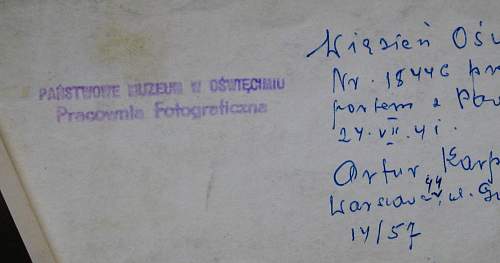 PAŃSTWOWE MUZEUM W OŚWIĘCIMIU
Pracownia Fotograficzna
Więzień Ośw
Nr. 18446 pr
portem z Paw
24.VII.41.
Artur Karp
Warszawa 44, ul. G
14/57